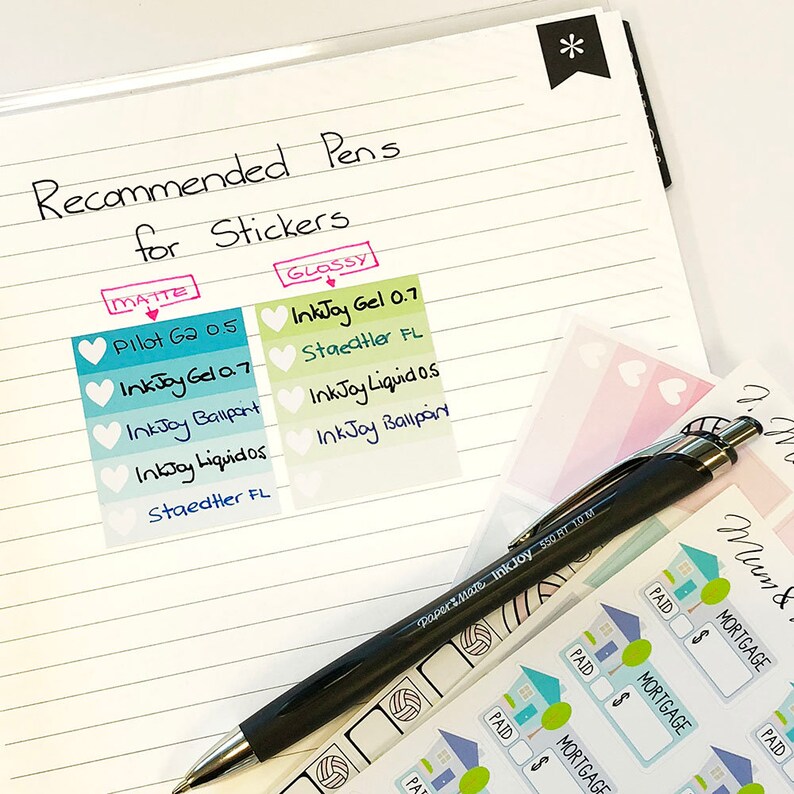 *
Recommended Pens
for Stickers
MATTE
Pilot G2 0.5
InkJoy Gel 0.7
InkJoy Ballpoint
InkJoy Liquid 0.5
Staedtler FL
GLOSSY
InkJoy Gel 0.7
Staedtler FL
InkJoy Liquid 0.5
InkJoy Ballpoint
Paper Mate InkJoy 550 RT 1.0 M
Mum &
PAID $ MORTGAGE
PAID $ MORTGAGE
PAID $ MORTGAGE
PAID
PAID